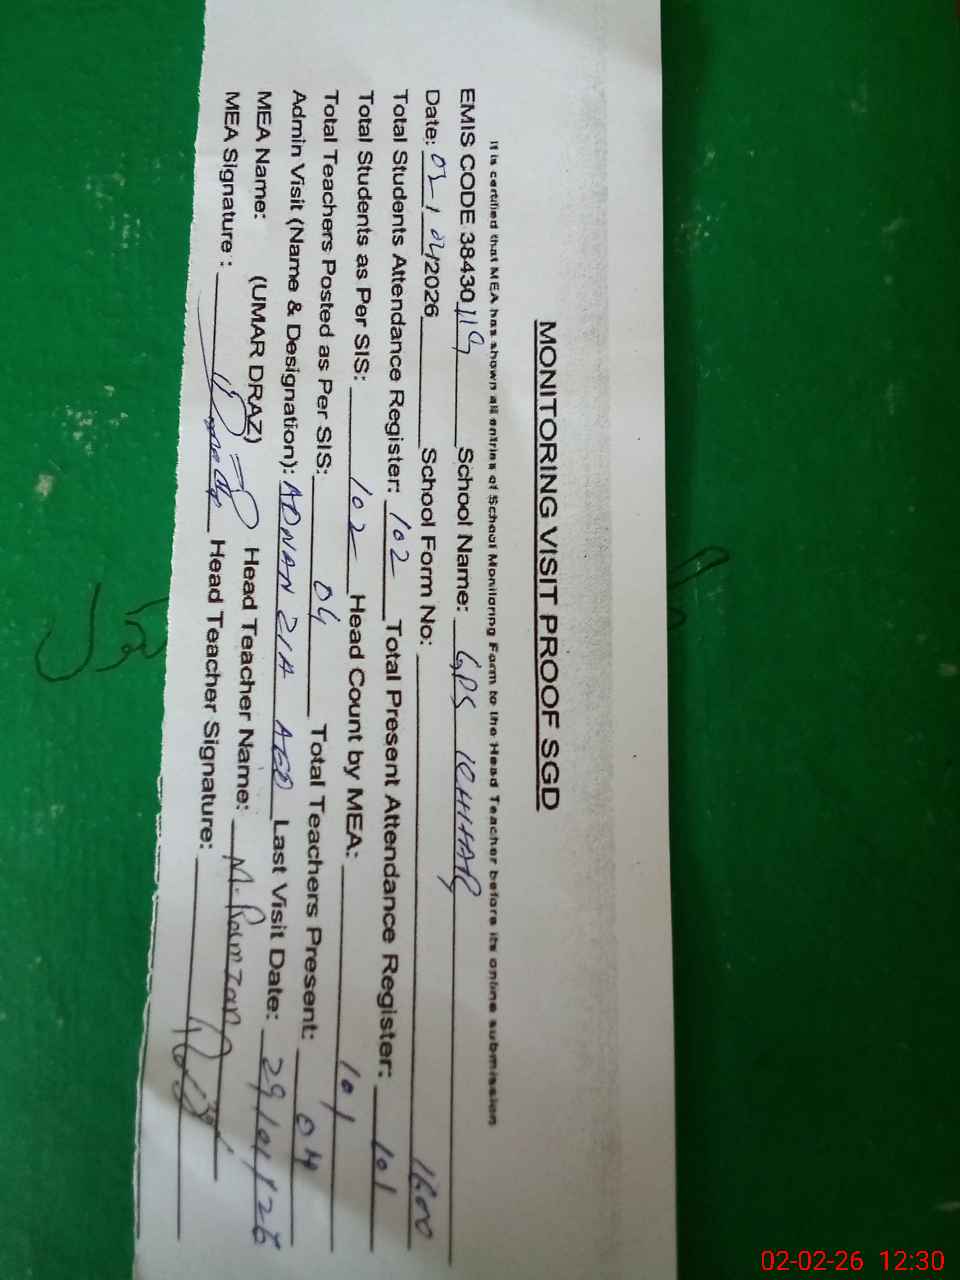 MONITORING VISIT PROOF SGD
It is certified that MEA has shown all entries of School Monitoring Form to the Head Teacher before its online submission
EMIS CODE 38430119 School Name: GPS
Date: /2026 School Form No: 1600
Total Students Attendance Register: 102 Total Present Attendance Register: 101
Total Students as Per SIS: 102 Head Count by MEA: 101
Total Teachers Posted as Per SIS: 04 Total Teachers Present: 04
Admin Visit (Name & Designation): ADNAN ZIA AEO Last Visit Date: 29/01/26
MEA Name: (UMAR DRAZ) Head Teacher Name: M. Ramzan
MEA Signature : Head Teacher Signature:
02-02-26 12:30